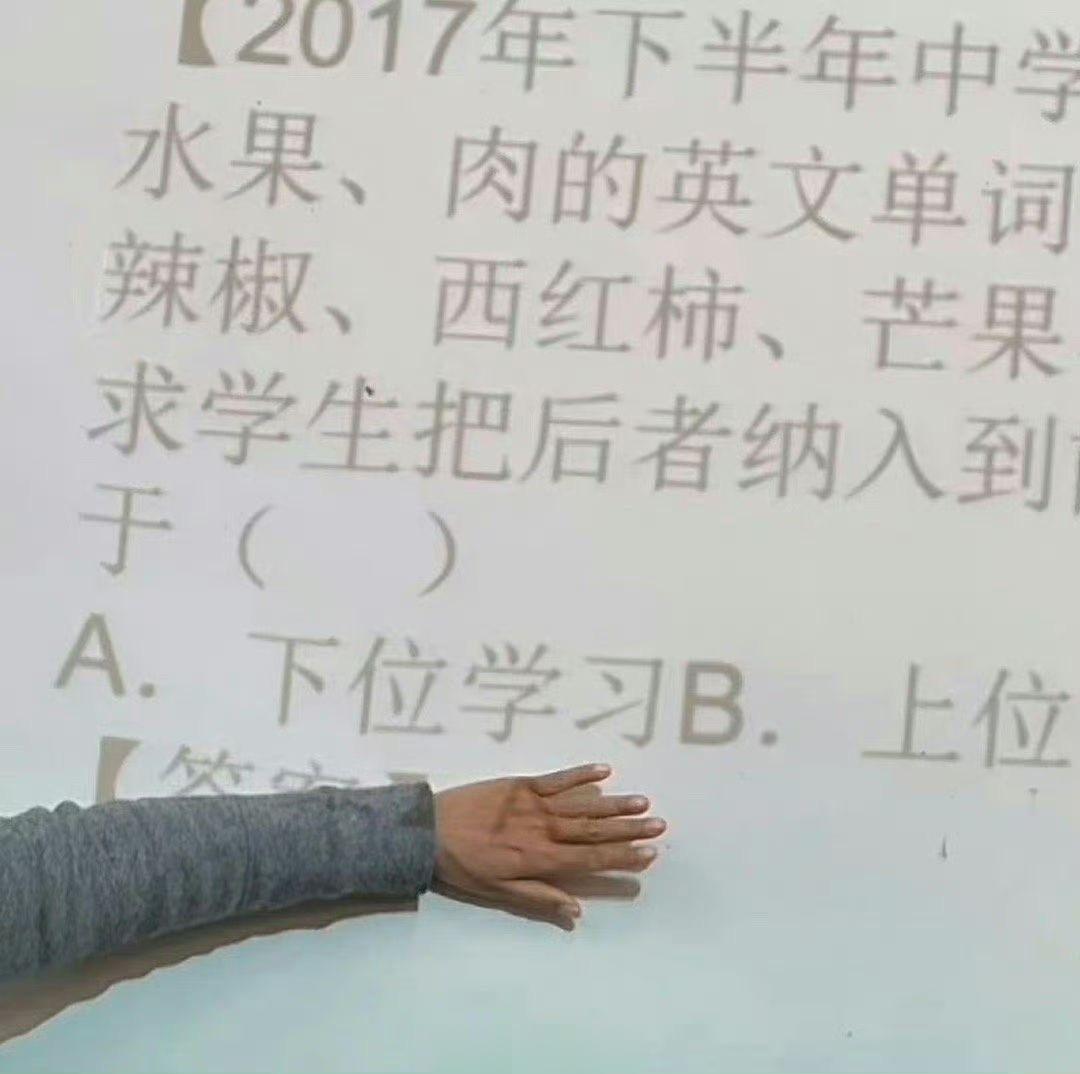 【2017年下半年中学
水果、肉的英文单词
辣椒、西红柿、芒果
求学生把后者纳入到
于（ ）
A. 下位学习B. 上位
【答案】